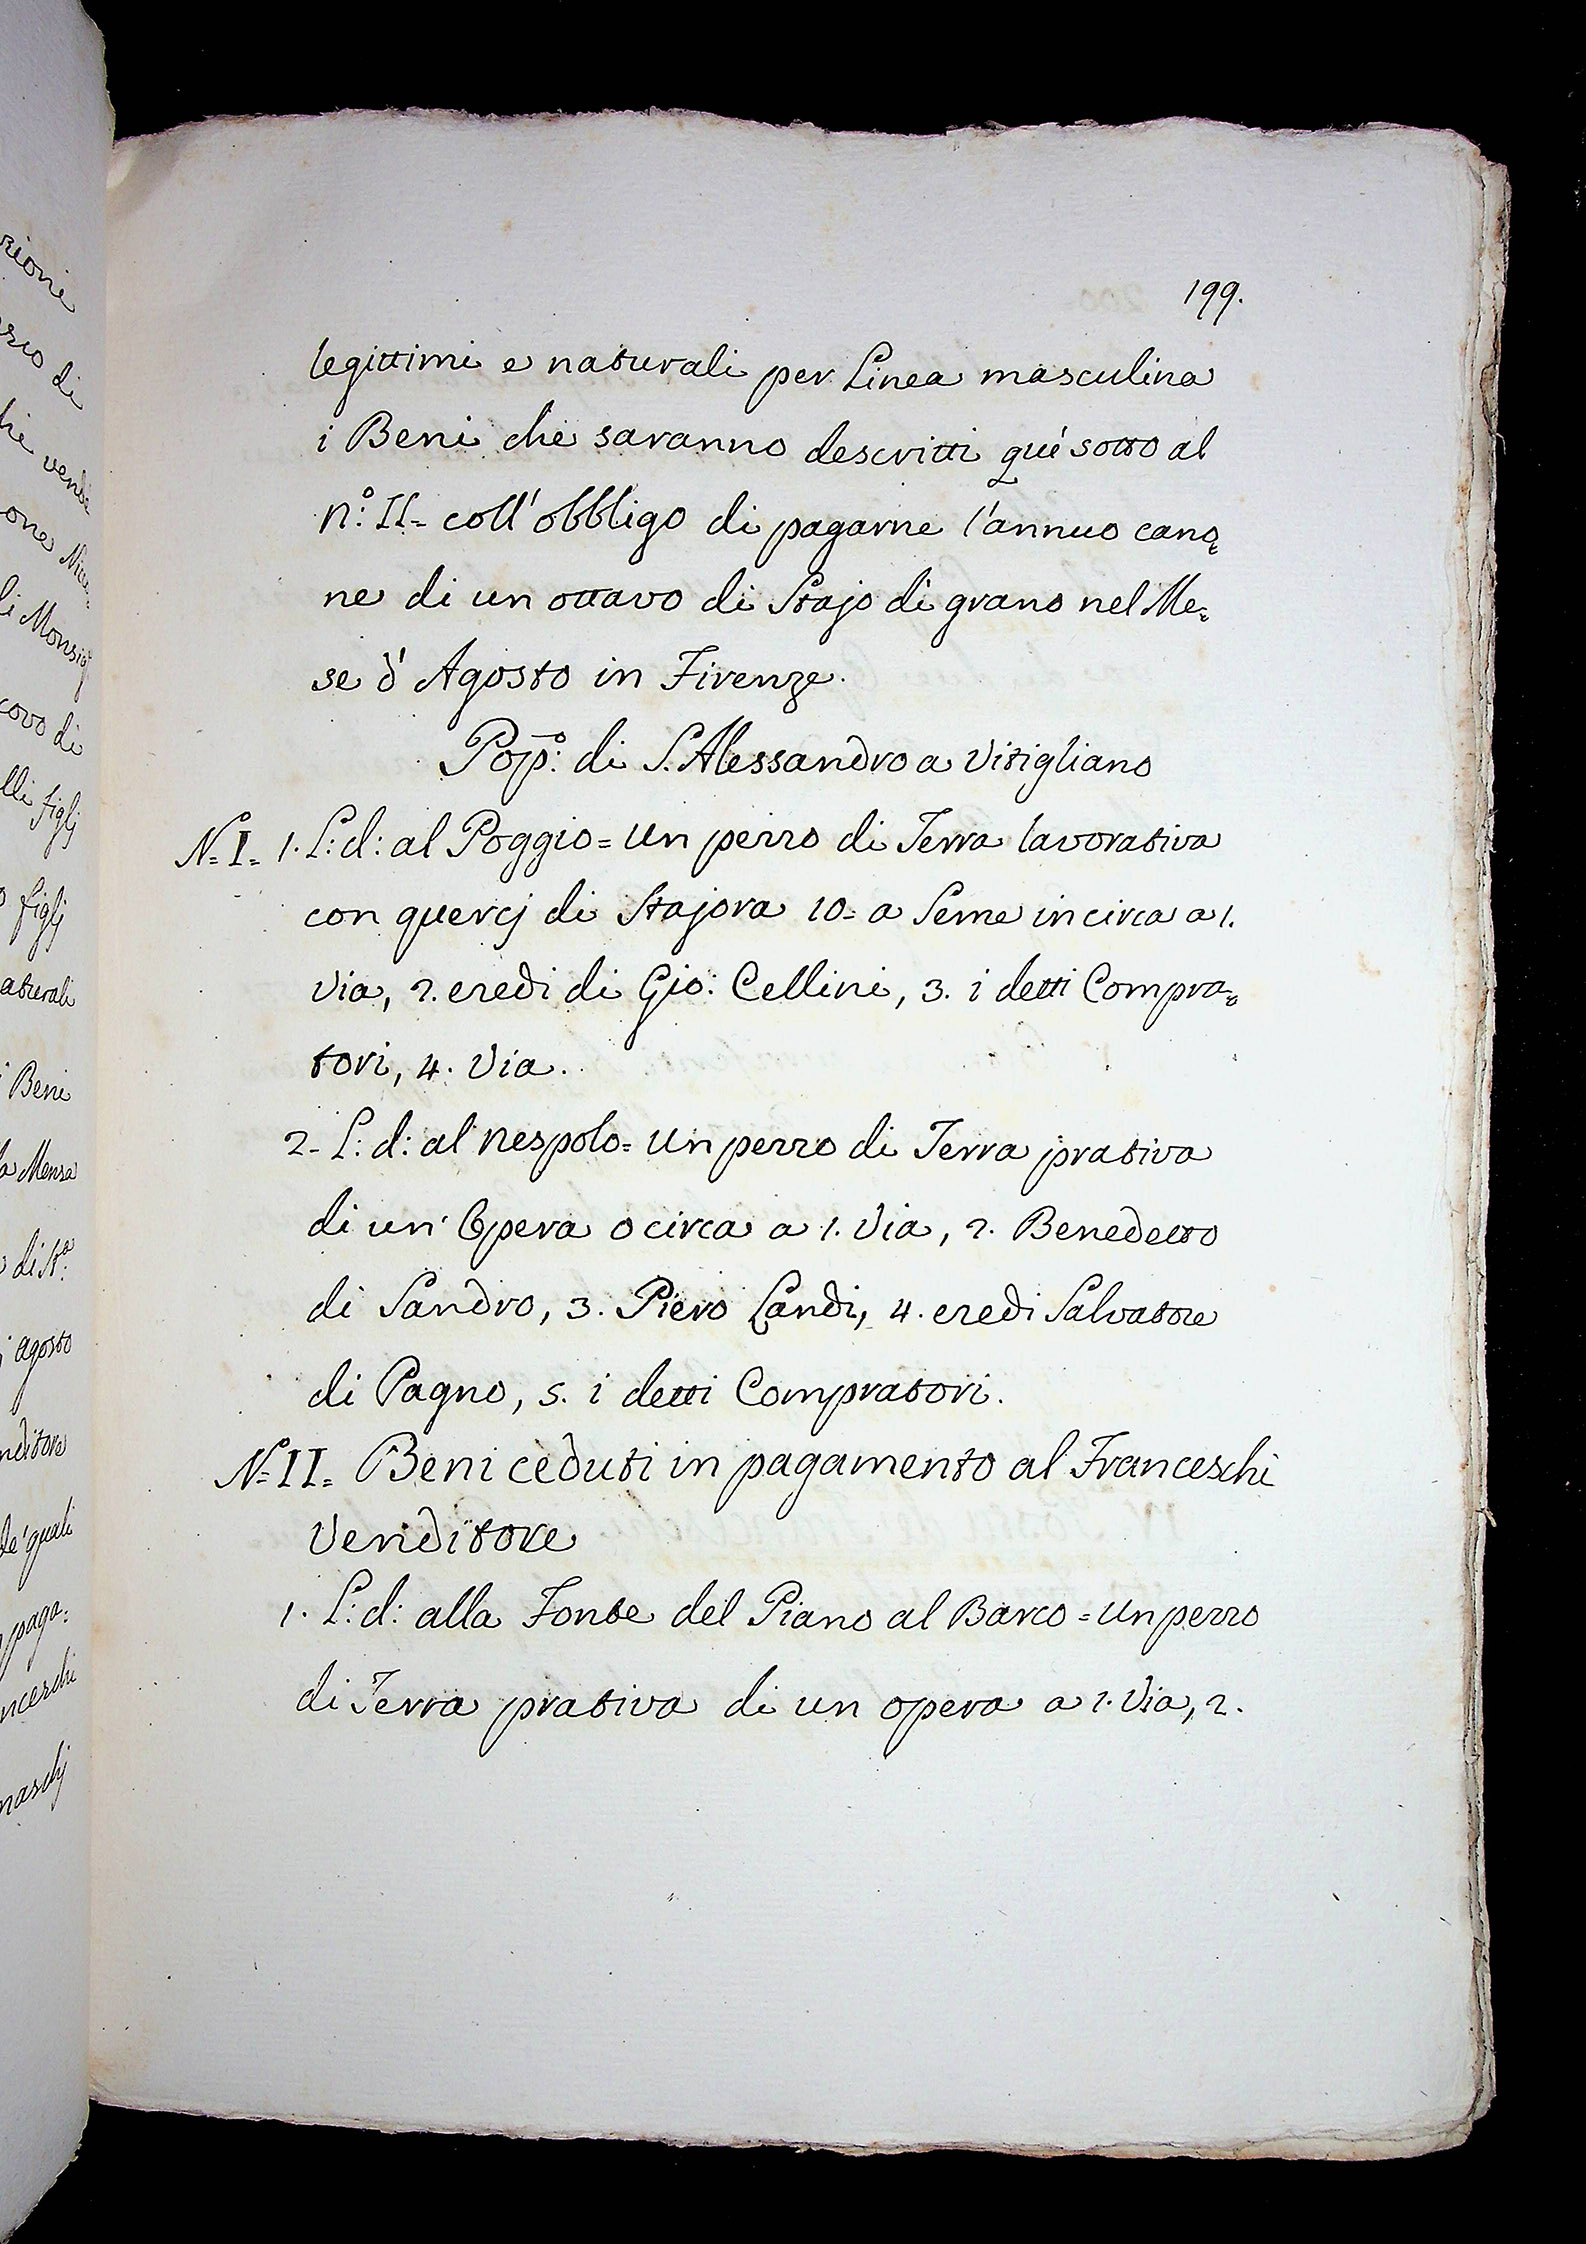 199.
legittimi e naturali per Linea masculina
i Beni che saranno descritti qui sotto al
n°: II= coll'obbligo di pagarne l'annuo cano=
ne di un ottavo di Stajo di grano nel Me=
se d'Agosto in Firenze.
Pop°: di S. Alessandro a Vitigliano
N=I= 1. L: d: al Poggio= un pezzo di Terra lavorativa
con quercj di Stajora 10= a Seme incirca a 1.
Via, 2. eredi di Gio: Cellini, 3. i detti Compra=
tori, 4. Via.
2- L: d: al Nespolo= un pezzo di Terra prativa
di un' Opera o circa a 1. Via, 2. Benedetto
di Sandro, 3. Piero Landi, 4. eredi Salvatore
di Pagno, 5. i detti Compratori.
N=II= Beni ceduti in pagamento al Franceschi
Venditore
1. L: d: alla Fonte del Piano al Barco= un pezzo
di Terra prativa di un opera a 1. Via, 2.
di
vende
li Monsig
covo di
lli figlj
figlj
aturali
i Beni
la Mensa
agosto
nditore
de' quali
paga:
nceschi
maschj